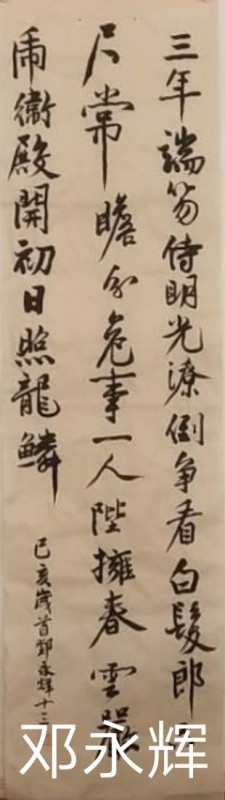 三年端笏侍明光潦倒争看白髮郎
尺常瞻分危事一人陛擁春雲嚴
虎衛殿開初日照龍鱗
己亥歲首鄧永輝十三
邓永辉